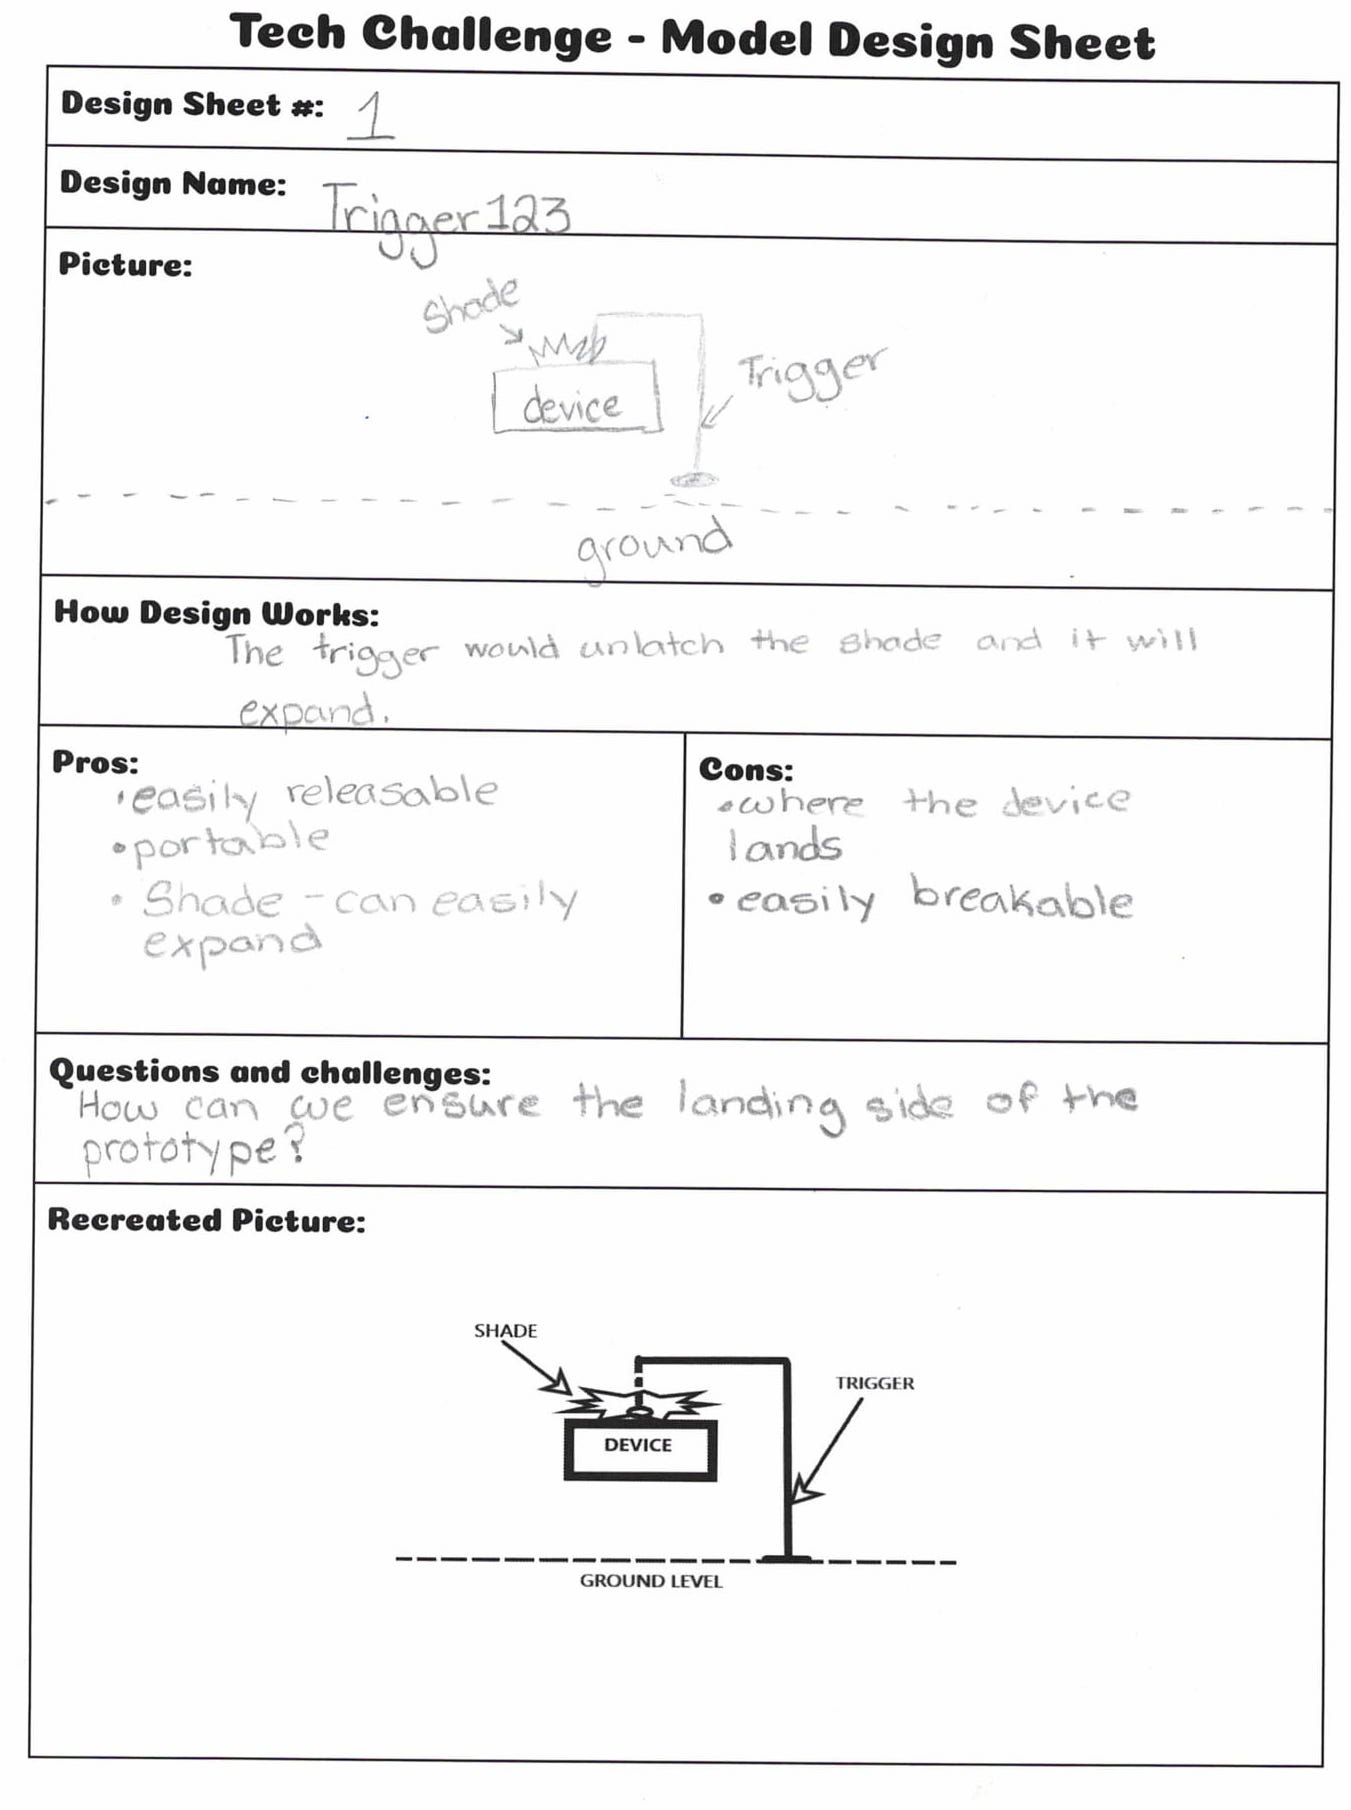 Tech Challenge - Model Design Sheet
Design Sheet #: 1
Design Name: Trigger123
Picture:
Shade
Trigger
device
ground
How Design Works:
The trigger would unlatch the shade and it will
expand.
Pros:
•easily releasable
•portable
• Shade - can easily
expand
Cons:
•where the device
lands
•easily breakable
Questions and challenges:
How can we ensure the landing side of the
prototype?
Recreated Picture:
SHADE
TRIGGER
DEVICE
GROUND LEVEL